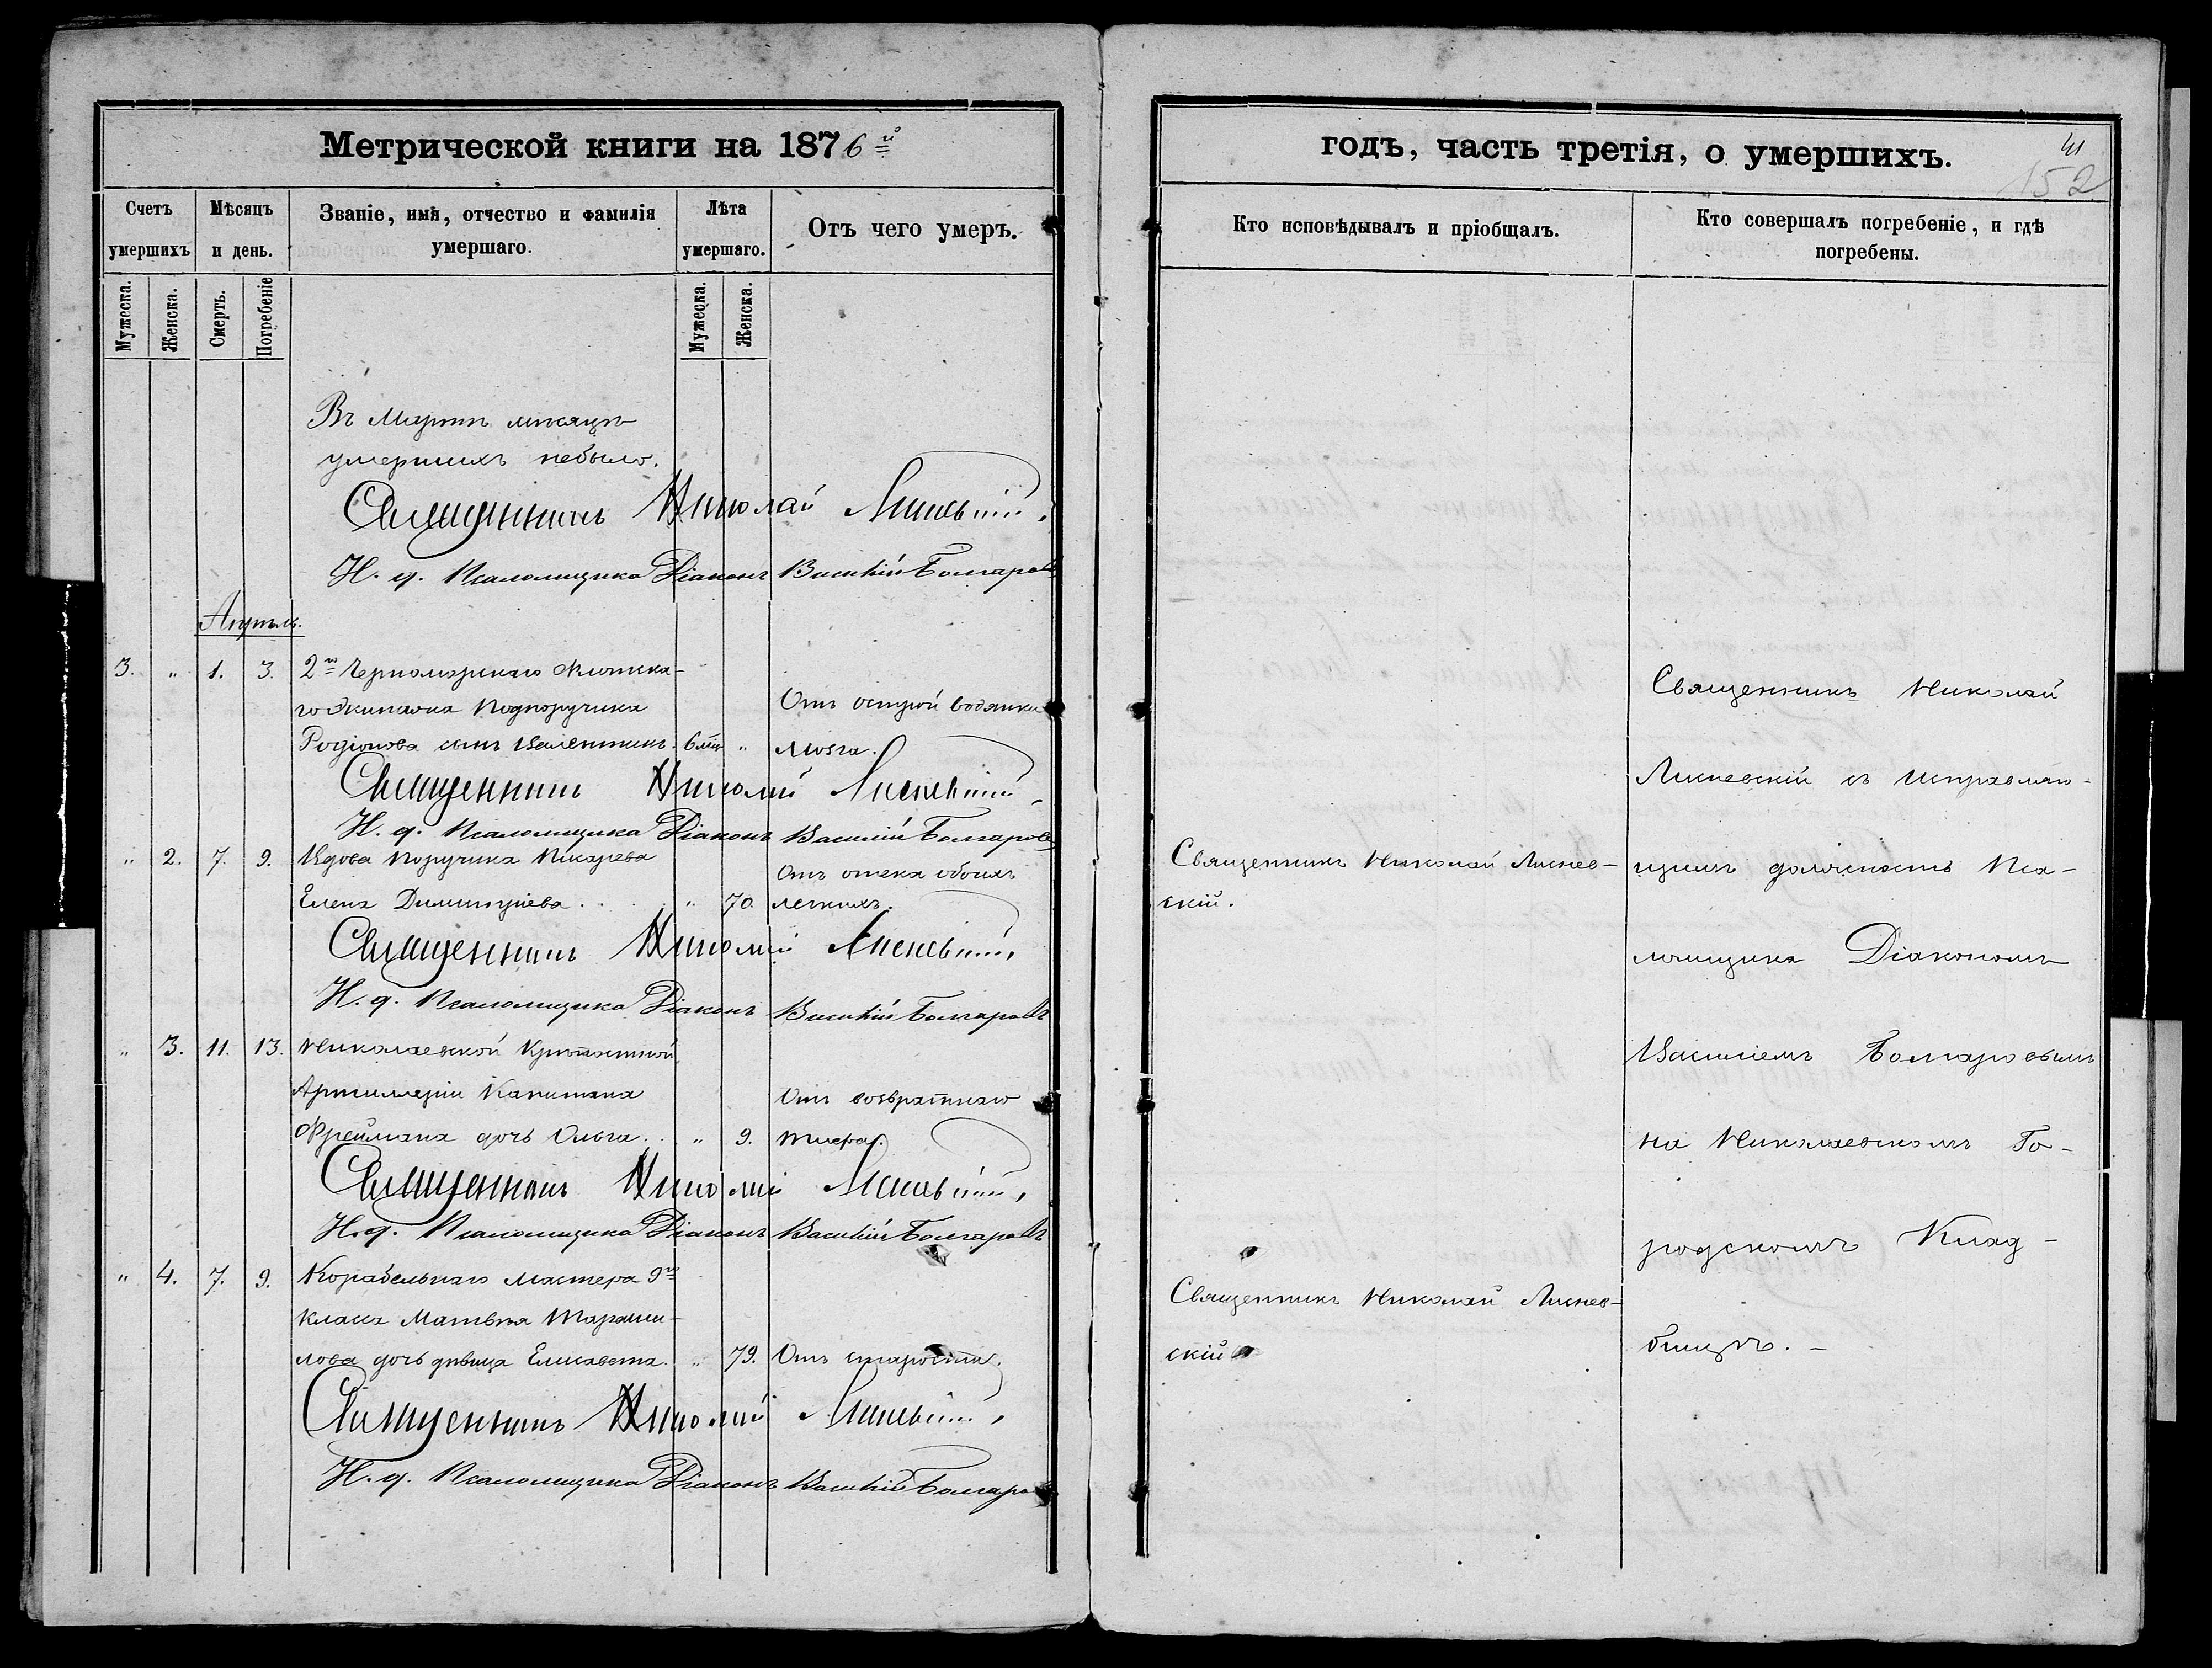 Метрической книги на 1876й
Счетъ умершихъ
Мѣсяцъ и день.
Званіе, имя, отчество и фамилія умершаго.
Лѣта умершаго.
Отъ чего умеръ.
Мужеска.
Женска.
Смерть.
Погребеніе
Мужеска.
Женска.
Въ Мартѣ мѣсяцѣ
умершихъ небыло.
Священникъ Николай Лисневскій.
И. д. Псаломщика Діаконъ Василій Болгаровъ
Апрѣль.
3. „ 1. 3. 2го Черноморскаго Флотска-
го Экипажа Подпоручика Отъ острой водянки
Родіонова сынъ Валентинъ. 6 мѣс „ мозга.
Священникъ Николай Лисневскій.
И. д. Псаломщика Діаконъ Василій Болгаровъ
„ 2. 7. 9. Вдова Поручика Писарева Отъ отека обоихъ
Елена Димитріева. „ 70. легкихъ.
Священникъ Николай Лисневскій.
И. д. Псаломщика Діаконъ Василій Болгаровъ
„ 3. 11. 13. Николаевской Крѣпостной
Артиллеріи Капитана Отъ возвратнаго
Фреймана дочь Ольга. „ 9. тифа.
Священникъ Николай Лисневскій.
И. д. Псаломщика Діаконъ Василій Болгаровъ
„ 4. 7. 9. Корабельнаго Мастера 9го
класса Матвѣя
дочь дѣвица Елисавета. „ 79. Отъ старости.
Священникъ Николай Лисневскій.
И. д. Псаломщика Діаконъ Василій Болгаровъ
годъ, часть третія, о умершихъ.
152
Кто исповѣдывалъ и пріобщалъ.
Кто совершалъ погребеніе, и гдѣ погребены.
Священникъ Николай Лиснев-
скій.
Священникъ Николай Лиснев-
скій
Священникъ Николай
Лисневскій съ исправляю-
щимъ должность Пса-
ломщика Діакономъ
Василіемъ Болгаровымъ
на Николаевскомъ Го-
родскомъ Клад-
бищѣ. -